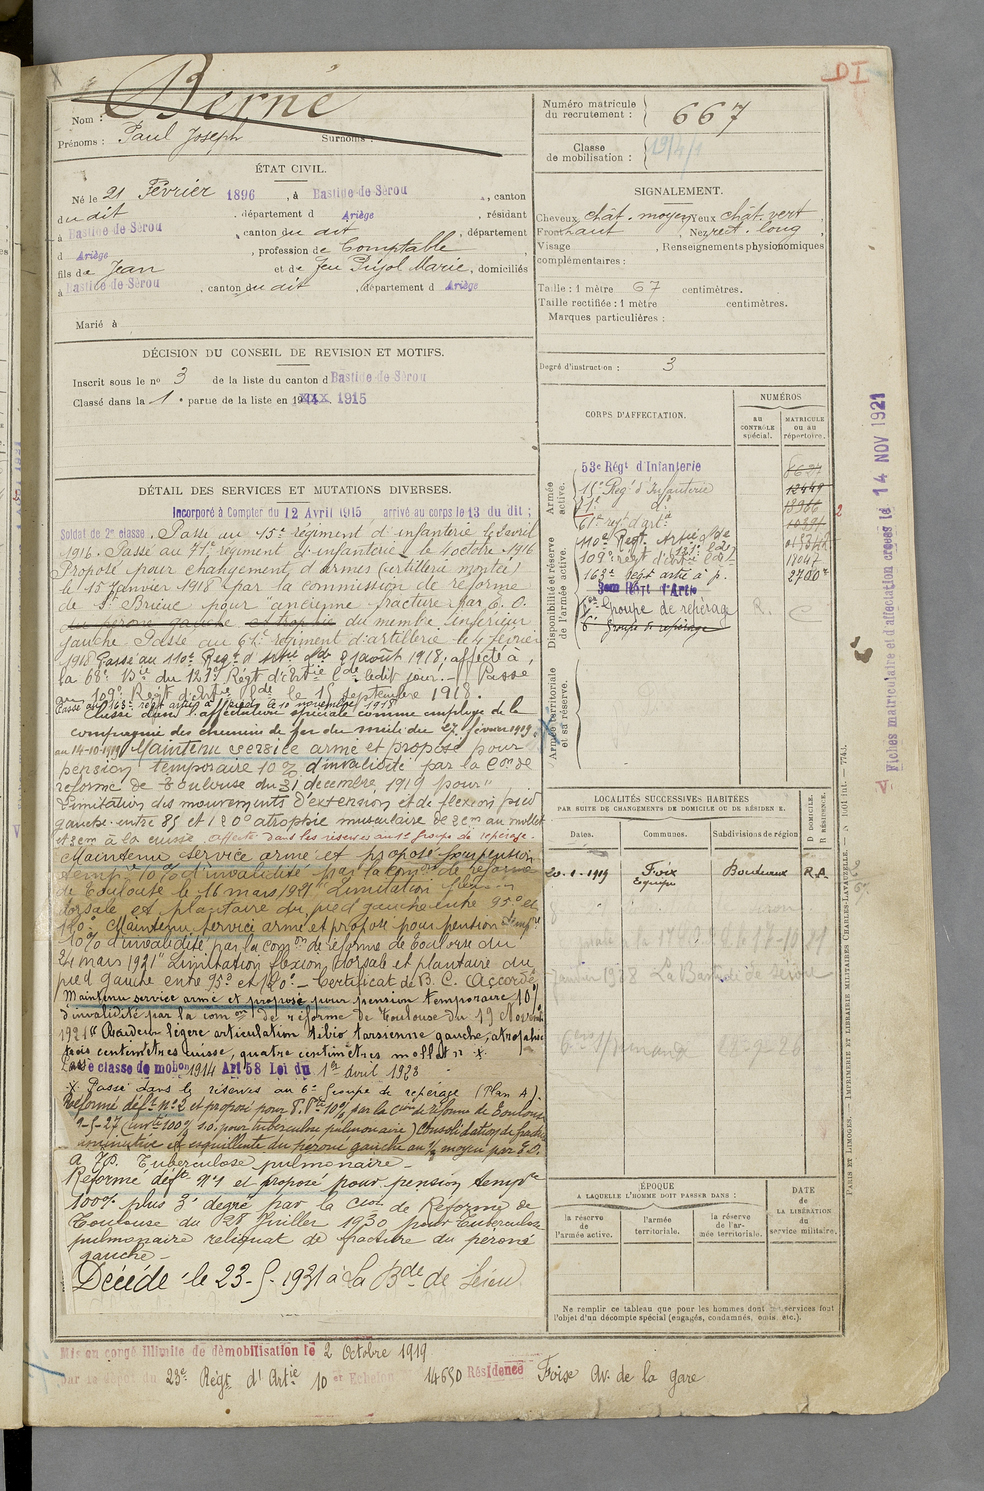 DI
Nom : Berné
Prénoms : Paul Joseph Surnoms :
ÉTAT CIVIL.
Né le 21 Février 1896, à Bastide-de-Sérou, canton
du dit, département d Ariège, résidant
à Bastide-de-Sérou, canton du dit, département
d Ariège, profession de Comptable
fils de Jean et de feu Pujol Marie, domiciliés
à Bastide-de-Sérou, canton du dit, département d Ariège
Marié à
DÉCISION DU CONSEIL DE REVISION ET MOTIFS.
Inscrit sous le no 3 de la liste du canton d Bastide-de-Sérou
Classé dans la 1e partie de la liste en 1915
DÉTAIL DES SERVICES ET MUTATIONS DIVERSES.
Incorporé à Compter du 12 Avril 1915 arrivé au corps le 13 du dit ;
Soldat de 2e classe. Passé au 15e régiment d'infanterie le 3 avril
1916. Passé au régiment d'infanterie le 4 octobre 1916
Proposé pour changement d'armes (artillerie montée)
le 15 Janvier 1918 par la commission de réforme
de St Brieuc pour "ancienne fracture par E. O.
du péroné gauche et trophie du membre inférieur
gauche. Passé au régiment d'artillerie le 4 février
1918 Passé au 110e Régt d'Artie Lde 8 août 1918, affecté à
la 68e Bie du 121e Régt d'Artie Lde ledit jour. Passé
au 109e Régt d'Artie Lde le 15 septembre 1918.
Passé au 163e régt artie à pieds le 10 novembre 1918
Classé dans l'affectation spéciale comme employé de la
compagnie des chemins de fer du midi du 27 février 1919
au 14-10-1919 Maintenu service armé et proposé pour
pension temporaire 10 % d'invalidité par la Con de
réforme de Toulouse du 31 décembre 1919 pour "
Limitation des mouvements d'extension et de flexion pied
gauche entre 85 et 120° atrophie musculaire de 2cm au mollet
et 3cm à la cuisse affecté dans les réserves au 1e groupe de repérage.
Maintenu service armé et proposé pour pension
tempre 10% d'invalidité par la Comon de réforme
de Toulouse le 16 mars 1921 "Limitation flexion
dorsale et plantaire du pied gauche entre 95° et
120°. Maintenu service armé et proposé pour pension tempre
10% d'invalidité par la Comon de réforme de Toulouse du
24 mars 1921 "Limitation flexion dorsale et plantaire du
pied gauche entre 95° et 120° - Certificat de B. C. Accordé
Maintenu service armé et proposé pour pension temporaire 10%
d'invalidité par la comon de réforme de Toulouse du 19 Novem
1921 " Raideur légère articulation tibio tarsienne gauche, atrophie
trois centimètres cuisse, quatre centimètres mollet " x
Passé classe de mobon 1914 Art 58 Loi du 1er Avril 1923
x Passé dans les réserves au 6e Groupe de repérage (Plan A).
Réformé déft no 2 et proposé pour P. Pte 10% par la Con de réforme de Toulouse
9-5-27 (Invté 100% s.o. pour tuberculose pulmonaire) Consolidation de fracture
et esquillente du péroné gauche au 1/3 moyen par E.O.
Tuberculose pulmonaire -
Réforme défve no 1 et proposé pour pension tempre
100% plus 3e degré par la Con de Réforme de
Toulouse du 28 Juillet 1930 pour tuberculose
pulmonaire reliquat de fracture du péroné
gauche -
Décédé le 23-5-1931 à La Bde de Sérou
Mis en congé illimité de démobilisation le 2 Octobre 1919
par le dépôt du 23e Régt d'Artie 10 et Echelon 14650 Résidence Foix Av. de la gare
Numéro matricule du recrutement : 667
Classe de mobilisation : 1914
SIGNALEMENT.
Cheveux chât. moyen Yeux chât. vert,
Front haut Nez rect. long,
Visage , Renseignements physionomiques
complémentaires :
Taille : 1 mètre 67 centimètres.
Taille rectifiée : 1 mètre centimètres.
Marques particulières :
Degré d'instruction : 3
CORPS D'AFFECTATION.
NUMÉROS
AU CONTRÔLE spécial.
MATRICULE ou au répertoire.
Armée active.
53e Régt d'Infanterie
15e Régt d'Infanterie 12449
do
régt d'artie
110e Régt Artie Lde
109e régt d'artie Lde
163e régt artie à p.
Disponibilité et réserve de l'armée active.
Groupe de repérage R. C
6e Groupe de repérage
Armée territoriale et sa réserve.
LOCALITÉS SUCCESSIVES HABITÉES
PAR SUITE DE CHANGEMENTS DE DOMICILE OU DE RÉSIDENCE.
Dates. Communes. Subdivisions de région
D DOMICILE. R RÉSIDENCE.
20-1-1919 Foix Bordeaux R.A.
Janvier 1928 La Bastide de Sérou
ÉPOQUE
A LAQUELLE L'HOMME DOIT PASSER DANS :
la réserve de l'armée active.
l'armée territoriale.
la réserve de l'armée territoriale.
DATE de LA LIBÉRATION du service militaire.
Ne remplir ce tableau que pour les hommes dont les services font
l'objet d'un décompte spécial (engagés, condamnés, omis, etc.).
Fiches matriculaire et d'affectation créées le 14 NOV 1921
PARIS ET LIMOGES. — IMPRIMERIE ET LIBRAIRIE MILITAIRES CHARLES-LAVAUZELLE.